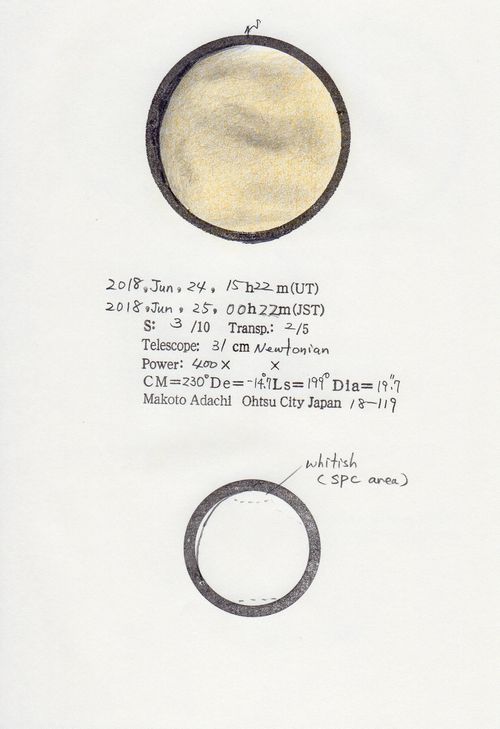 2018, Jun, 24, 15h22m(UT)
2018, Jun, 25, 00h22m(JST)
S: 3/10 Transp.: 2/5
Telescope: 31 cm Newtonian
Power: 400× ×
CM=230° De=-14.°7 Ls=199° Dia=19."7
Makoto Adachi Ohtsu City Japan 18-119
whitish
(SPC area)